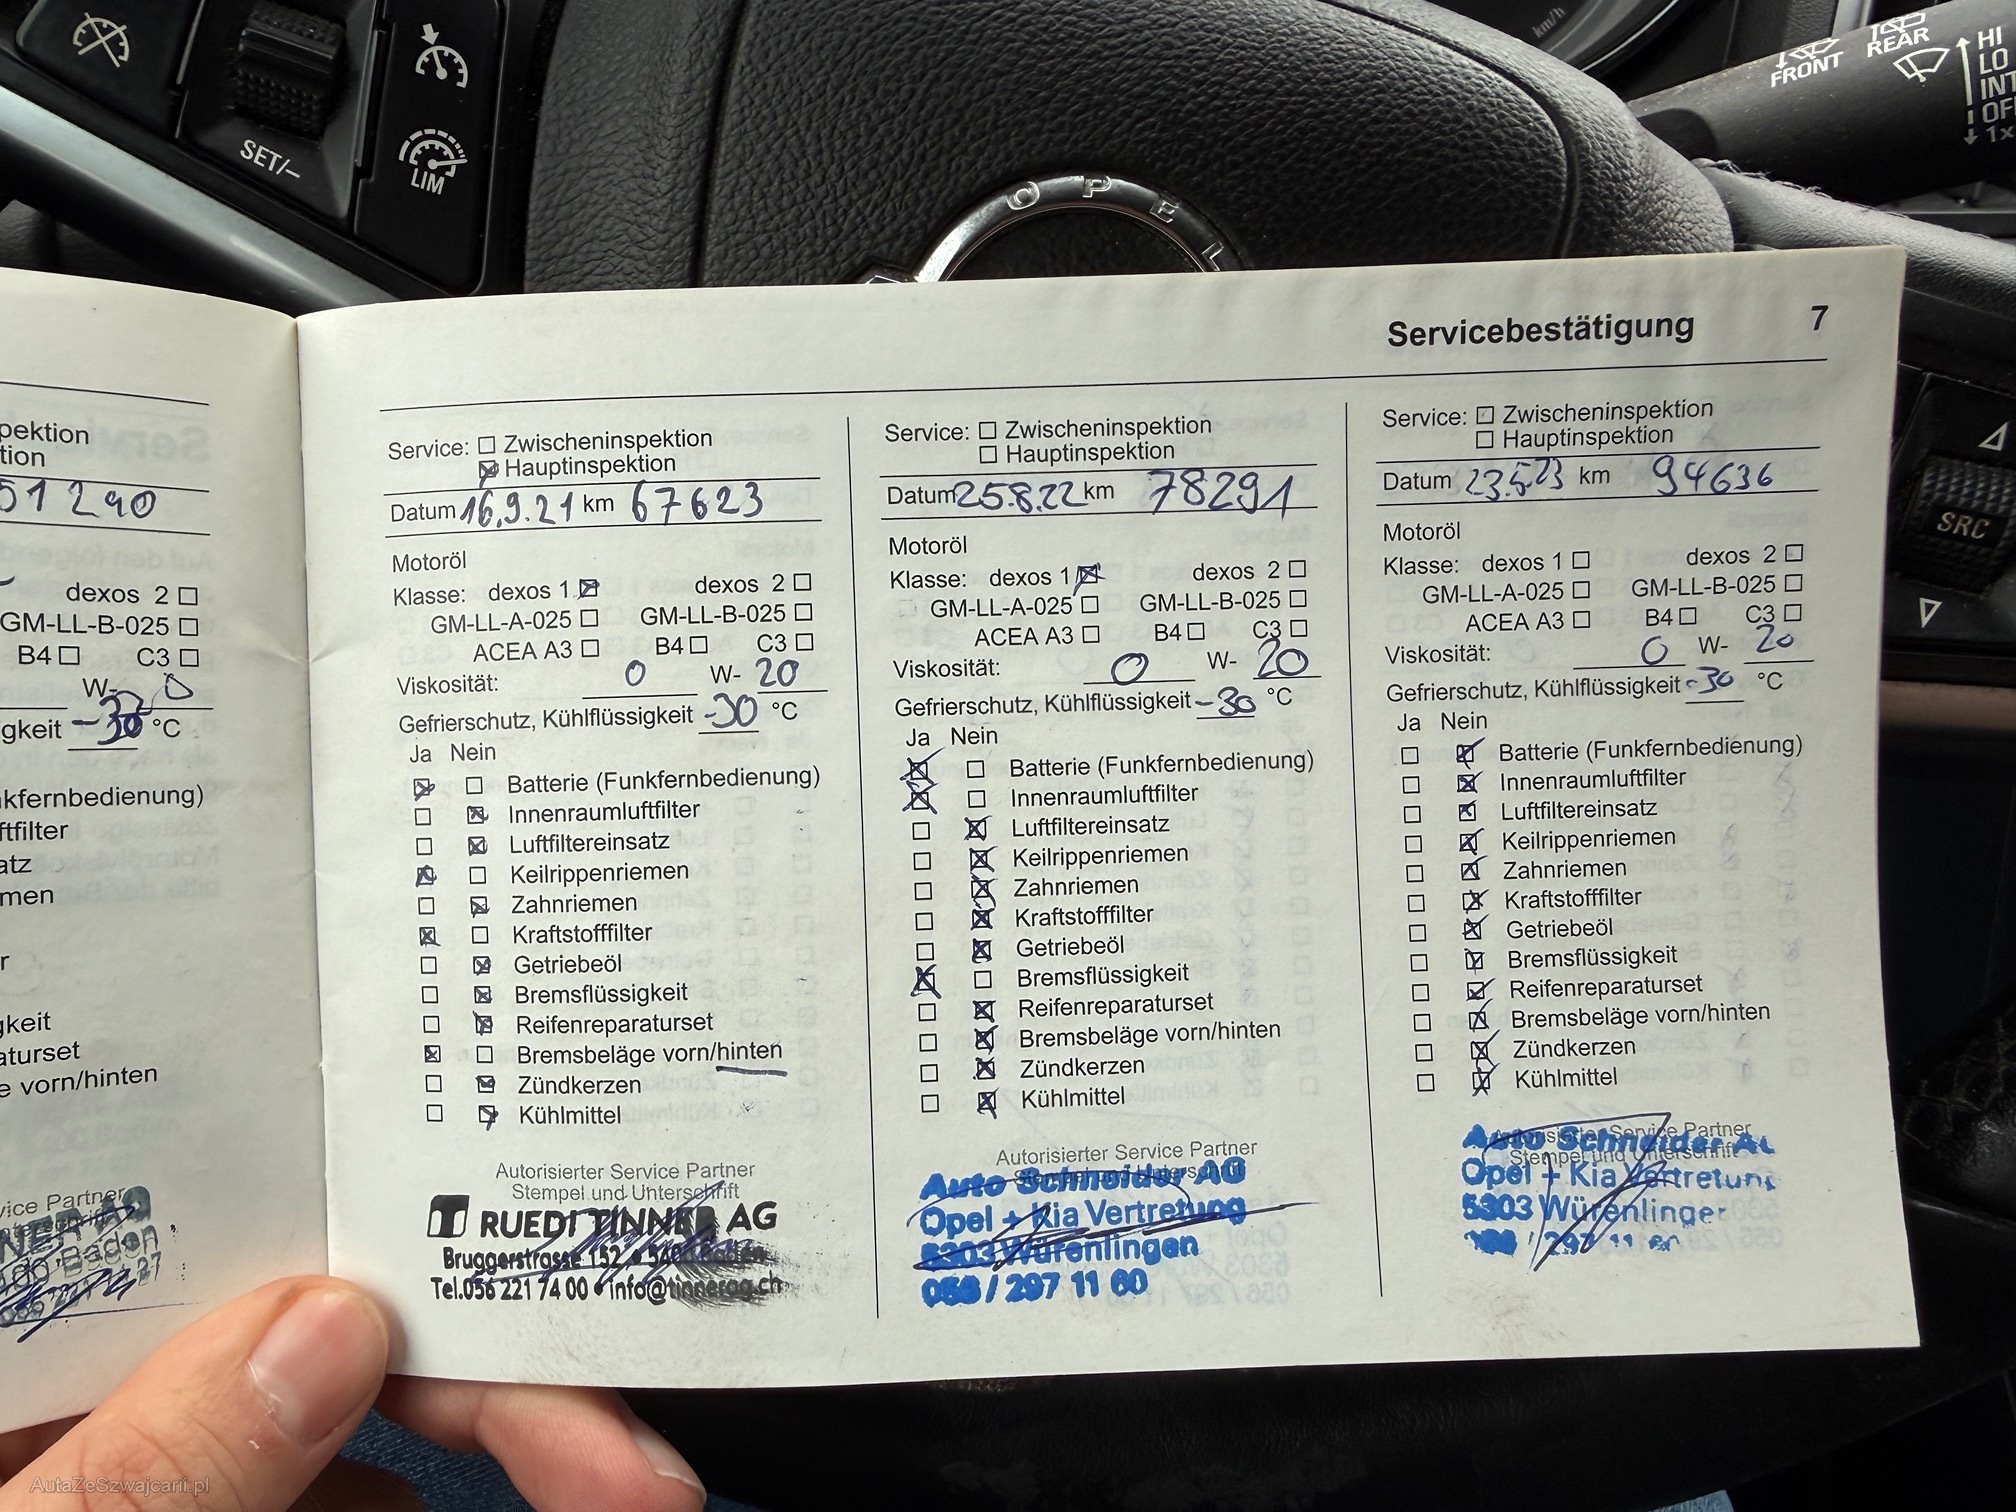 SET/–
LIM
OPEL
km/h
FRONT
REAR
HI
LO
INT
1x
SRC
pektion
tion
51290
dexos 2 ☐
GM-LL-B-025 ☐
B4 ☐ C3 ☐
W-
gkeit -30 °C
kfernbedienung)
tfilter
atz
men
r
gkeit
aturset
e vorn/hinten
vice Partner
Baden
Servicebestätigung 7
Service: ☐ Zwischeninspektion
☒ Hauptinspektion
Datum 16.9.21 km 67623
Motoröl
Klasse: dexos 1 ☒ dexos 2 ☐
GM-LL-A-025 ☐ GM-LL-B-025 ☐
ACEA A3 ☐ B4 ☐ C3 ☐
Viskosität: 0 W- 20
Gefrierschutz, Kühlflüssigkeit -30 °C
Ja Nein
☒ ☐ Batterie (Funkfernbedienung)
☐ ☒ Innenraumluftfilter
☐ ☒ Luftfiltereinsatz
☒ ☐ Keilrippenriemen
☐ ☒ Zahnriemen
☒ ☐ Kraftstofffilter
☐ ☒ Getriebeöl
☐ ☒ Bremsflüssigkeit
☐ ☒ Reifenreparaturset
☒ ☐ Bremsbeläge vorn/hinten
☐ ☒ Zündkerzen
☐ ☒ Kühlmittel
Autorisierter Service Partner
Stempel und Unterschrift
RUEDI TINNER AG
Bruggerstrasse 152 • Baden
Tel.056 221 74 00 • info@tinnerag.ch
Service: ☐ Zwischeninspektion
☐ Hauptinspektion
Datum 25.8.22 km 78291
Motoröl
Klasse: dexos 1 ☒ dexos 2 ☐
GM-LL-A-025 ☐ GM-LL-B-025 ☐
ACEA A3 ☐ B4 ☐ C3 ☐
Viskosität: 0 W- 20
Gefrierschutz, Kühlflüssigkeit -30 °C
Ja Nein
☒ ☐ Batterie (Funkfernbedienung)
☒ ☐ Innenraumluftfilter
☐ ☒ Luftfiltereinsatz
☐ ☒ Keilrippenriemen
☐ ☒ Zahnriemen
☐ ☒ Kraftstofffilter
☐ ☒ Getriebeöl
☒ ☐ Bremsflüssigkeit
☐ ☒ Reifenreparaturset
☐ ☒ Bremsbeläge vorn/hinten
☐ ☒ Zündkerzen
☐ ☒ Kühlmittel
Autorisierter Service Partner
Stempel und Unterschrift
Auto Schneider AG
Opel + Kia Vertretung
5303 Würenlingen
056 / 297 11 60
Service: ☐ Zwischeninspektion
☐ Hauptinspektion
Datum 23.5.23 km 94636
Motoröl
Klasse: dexos 1 ☐ dexos 2 ☐
GM-LL-A-025 ☐ GM-LL-B-025 ☐
ACEA A3 ☐ B4 ☐ C3 ☐
Viskosität: 0 W- 20
Gefrierschutz, Kühlflüssigkeit -30 °C
Ja Nein
☐ ☒ Batterie (Funkfernbedienung)
☐ ☒ Innenraumluftfilter
☐ ☒ Luftfiltereinsatz
☐ ☒ Keilrippenriemen
☐ ☒ Zahnriemen
☐ ☒ Kraftstofffilter
☐ ☒ Getriebeöl
☐ ☒ Bremsflüssigkeit
☐ ☒ Reifenreparaturset
☐ ☒ Bremsbeläge vorn/hinten
☐ ☒ Zündkerzen
☐ ☒ Kühlmittel
Autorisierter Service Partner
Stempel und Unterschrift
Auto Schneider
Opel + Kia Vertretung
5303 Würenlingen
297 11 60
AutaZeSzwajcarii.pl